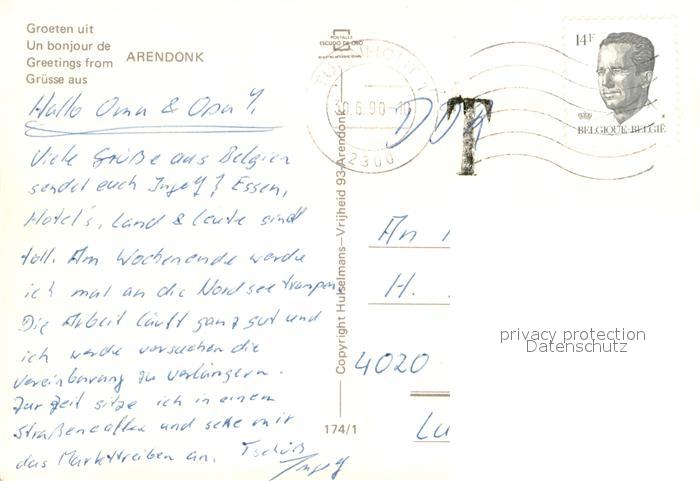 Groeten uit
Un bonjour de
Greetings from
Grüsse aus
ARENDONK
POSTALES
ESCUDO DE ORO
TURNHOUT
30.6.90
2300
DDR
T
14F
BELGIQUE-BELGIË
Hallo Oma & Opa!
Viele Grüße aus Belgien
sendet euch Ingolf! Essen,
Hotel's, Land & Leute sind
toll. Am Wochenende werde
ich mal an die Nordsee trampen.
Die Arbeit läuft ganz gut und
ich werde versuchen die
Vereinbarung zu verlängern.
Zur Zeit sitze ich in einem
Straßencaffee und sehe mir
das Markttreiben an. Tschüß
Ingolf
Copyright Hulselmans-Vrijheid 93-Arendonk
174/1
An
H.
4020
Lu
privacy protection
Datenschutz